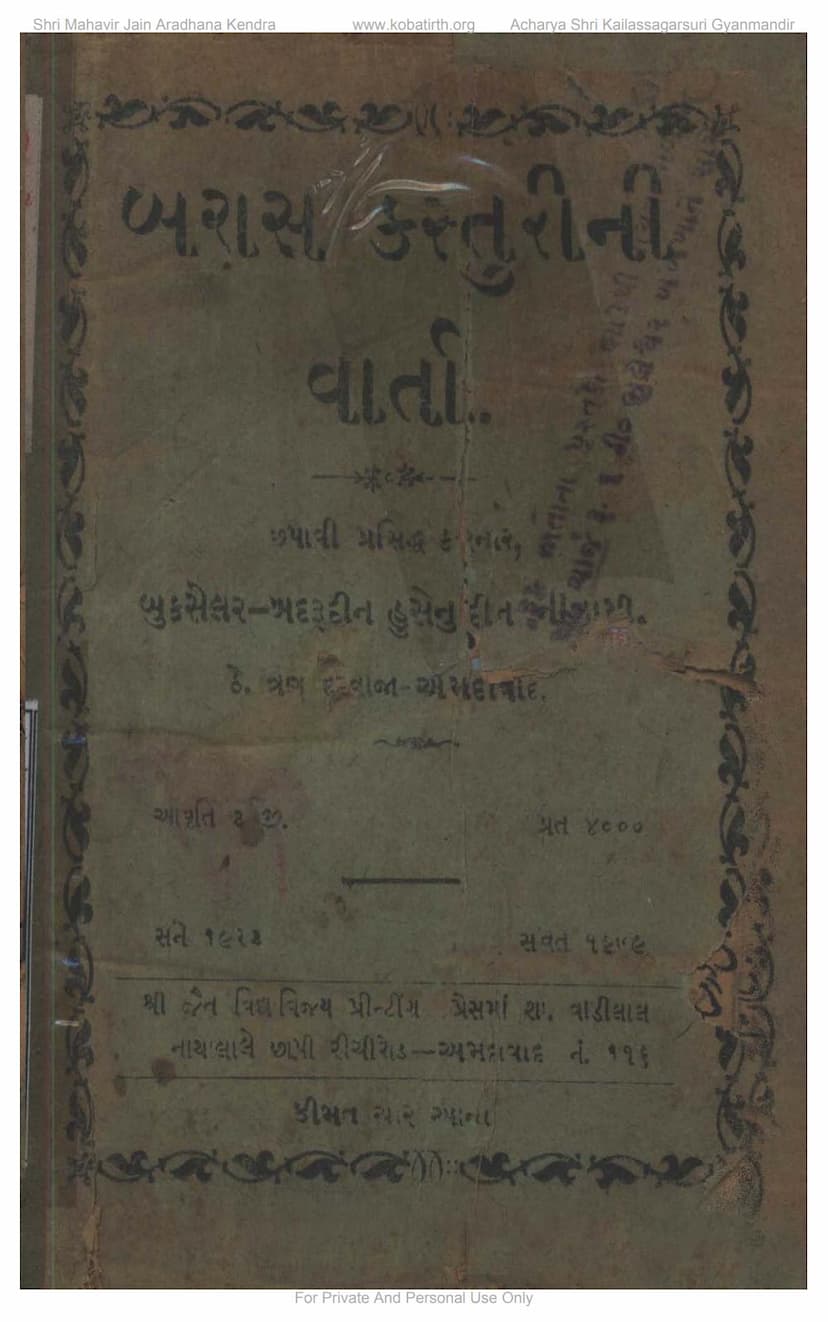 Shri Mahavir Jain Aradhana Kendra www.kobatirth.org Acharya Shri Kailassagarsuri Gyanmandir
બરાસ કસ્તુરીની
વાર્તા..
છપાવી પ્રસિદ્ધ કરનાર,
બુકસેલર—બદરૂદ્દીન હુસેનુદ્દીન
ઠે. ત્રણ દરવાજા-અમદાવાદ.
આવૃતિ જી. પ્રત ૪૦૦૦
સને સવત ૧૯૭૯
શ્રી જૈન વિદ્યાવિજય પ્રીન્ટીંગ પ્રેસમાં શા. વાડીલાલ
છાપી રીચીરોડ—અમદાવાદ નં. ૧૧૬
કીમત ચાર આના
For Private And Personal Use Only